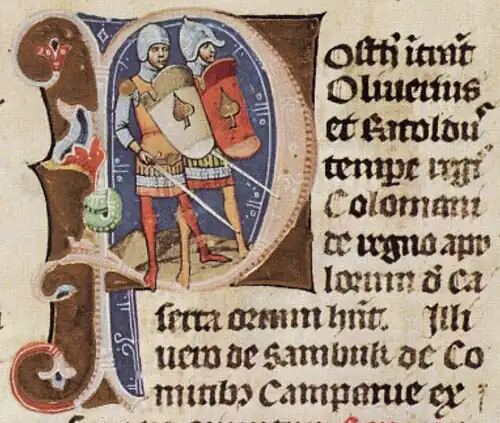 P
Oliuerius
et Ratoldus
tempe regis
Colomani
de regno apu
lorum d Ca
serta hnt. Illi
uero de Sambuk de Co
mitibꝫ Campanie ex